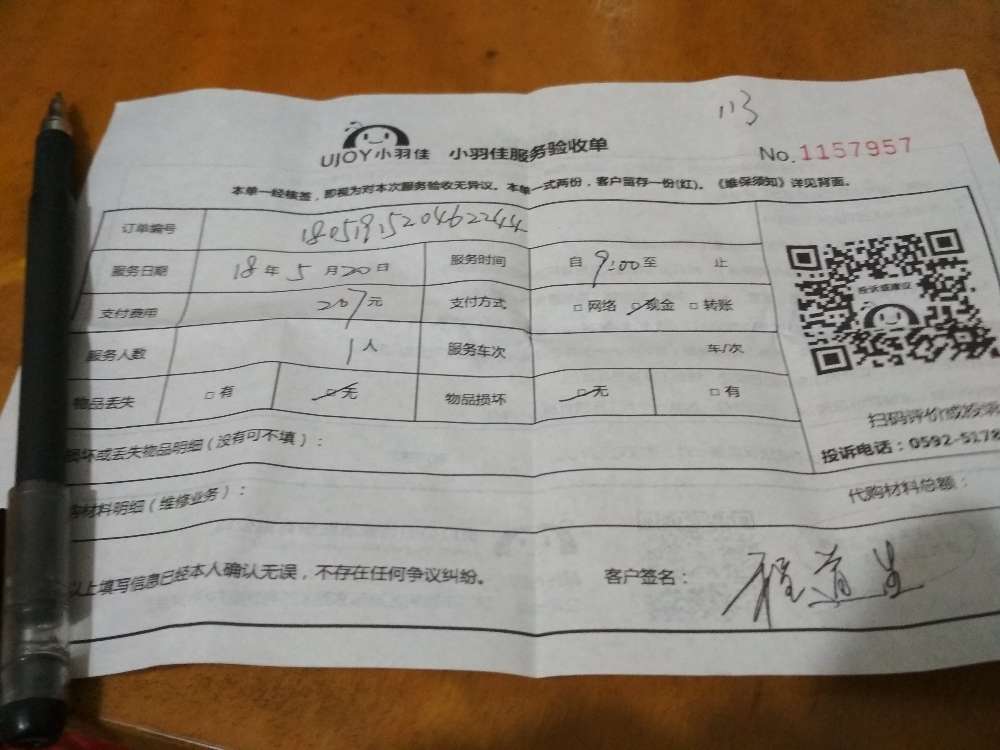 113
UJOY小羽佳 小羽佳服务验收单
No.1157957
本单一经核签，即视为对本次服务验收无异议。本单一式两份，客户留存一份(红)。《维保须知》详见背面。
订单编号 1805191520462244
服务日期 18年5月20日 服务时间 自9:00至 止
支付费用 207元 支付方式 □网络 □现金 □转账
服务人数 1人 服务车次 车/次
物品丢失 □有 □无 物品损坏 □无 □有
投诉或建议
扫码评价或投诉
投诉电话：0592-5178
损坏或丢失物品明细（没有可不填）：
购材料明细（维修业务）： 代购材料总额：
以上填写信息已经本人确认无误，不存在任何争议纠纷。 客户签名：程道生